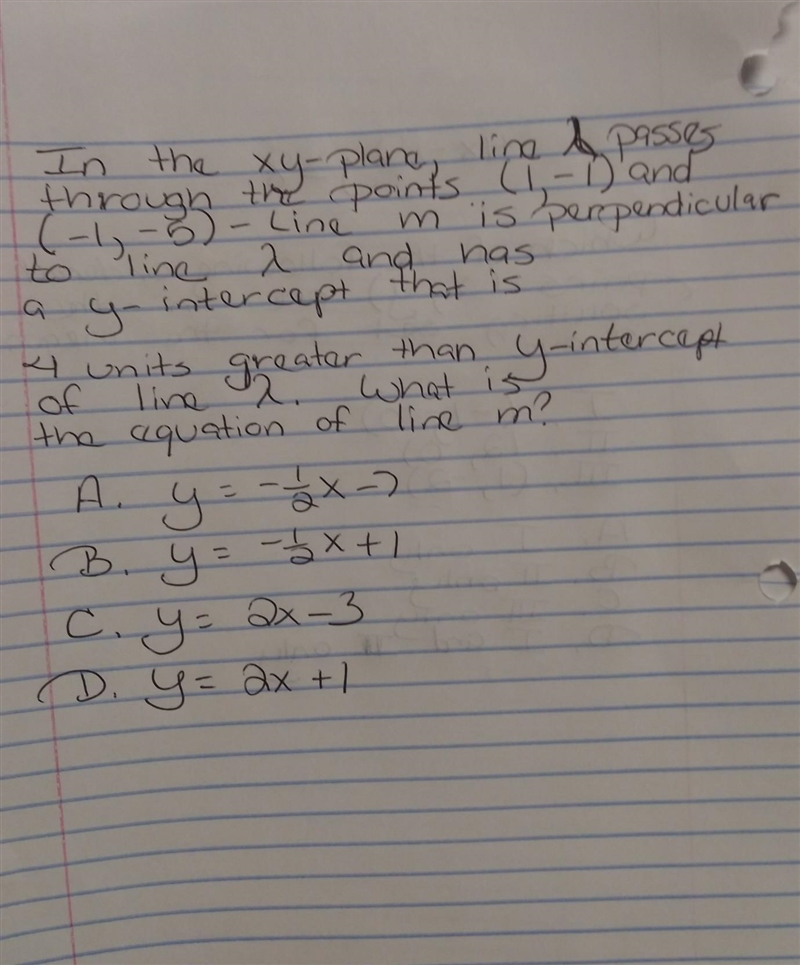 In the xy-plane, line λ passes
through the points (1,-1) and
(-1,-5) - Line m is perpendicular
to line λ and has
a y-intercept that is
4 units greater than y-intercept
of line λ. What is
the equation of line m?
A. y = -1/2x -7
B. y = -1/2x +1
C. y = 2x-3
D. y = 2x +1